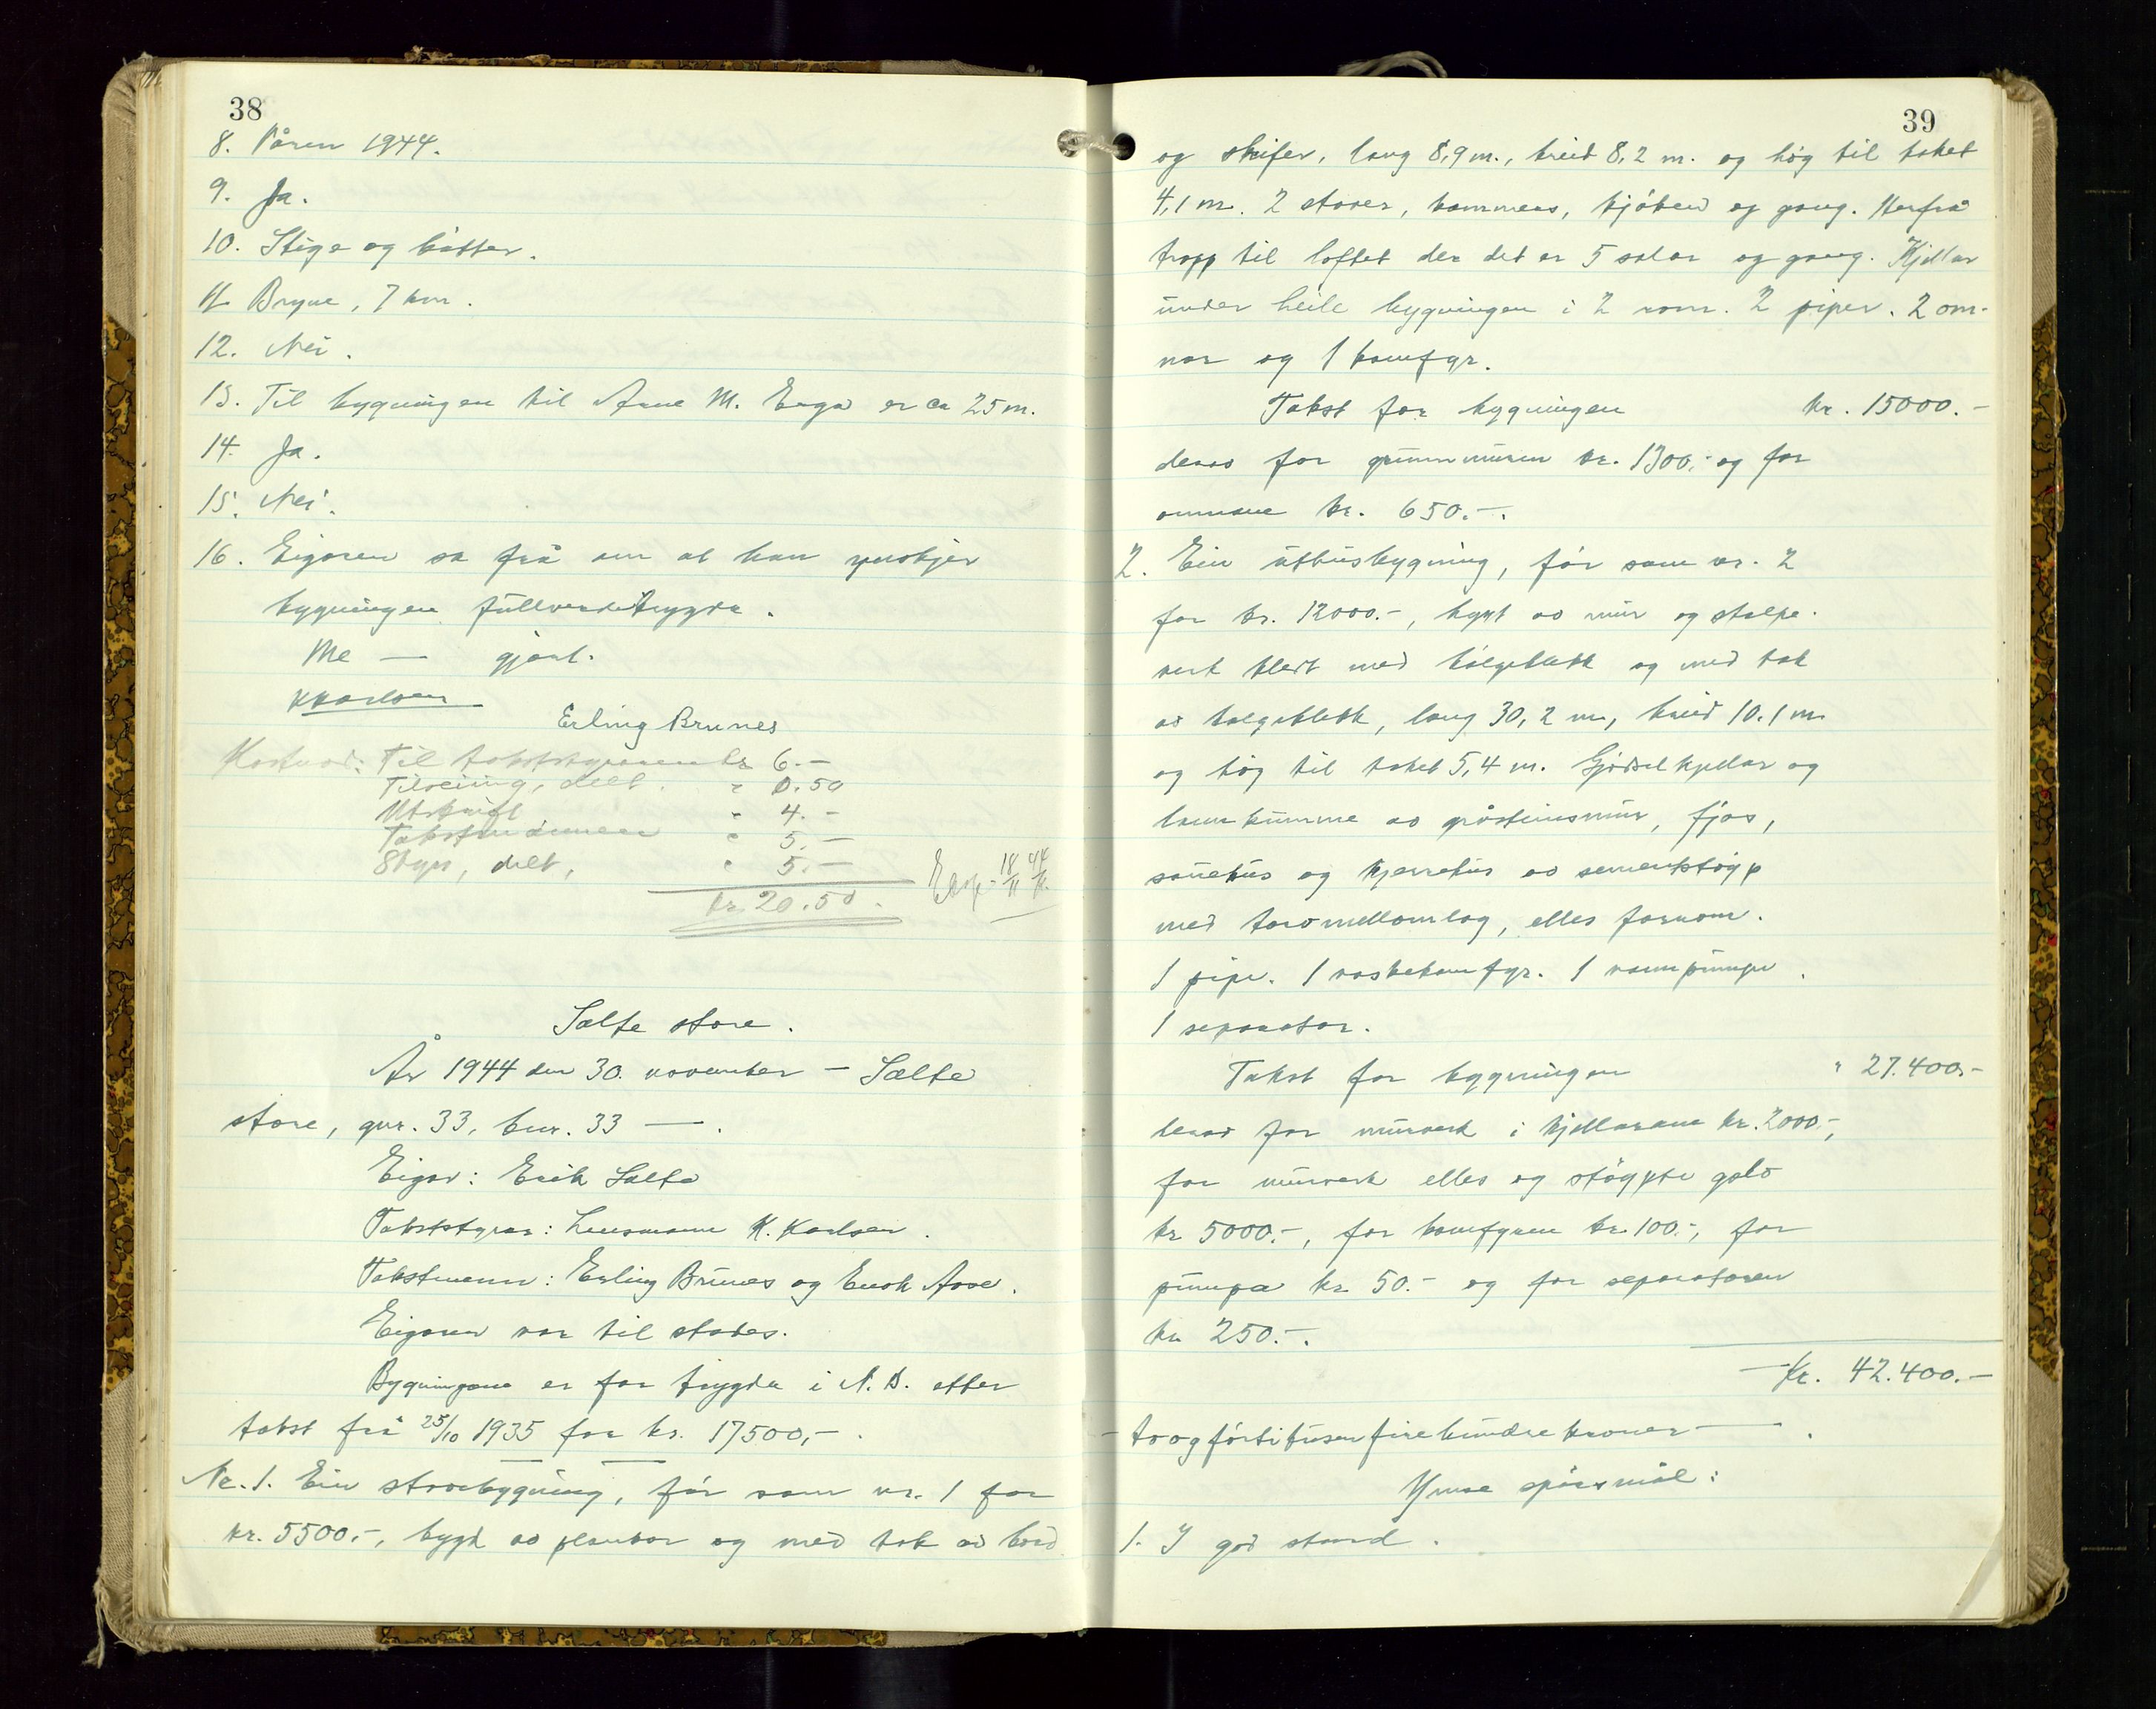 38
8. Våren 1944.
9. Ja.
10. Stige og bøtter.
11. Bryne, 7 km.
12. Nei.
13. Til bygningen til Arne M. Erga er ca 25 m.
14. Ja.
15. Nei.
16. Eigaren sa frå um at han ynskjer
bygningen fullverdetrygda.
Me — gjort.
K Karlsen
Erling Brunes
Kostnad: Til takststyraren kr 6.-
Tilseiing, delt. " 0.50
Utskrift " 4.-
Takstmennene " 5.-
Skyss, delt, " 5.-
kr. 20.50.
Eksp. 18/11 44
Salte store.
År 1944 den 30. november - Salte
store, gnr. 33, bnr. 33 —.
Eigar: Erik Salte
Takststyrar: Lensmann K. Karlsen.
Takstmenn: Erling Brunes og Enok Aase.
Eigaren var til stades.
Bygningane er før trygda i N. B. etter
takst frå 25/10 1935 for kr. 17500,-.
Nr. 1. Ein stovebygning, før som nr. 1 for
kr. 5500.-, bygd av plankar og med tak av bord
39
og skifer, lang 8,9 m., breid 8,2 m. og høg til taket
4,1 m. 2 stover, kammers, kjøken og gang. Herfrå
trapp til loftet der det er 5 salar og gang. Kjellar
under heile bygningen i 2 rom. 2 piper. 2 om-
nar og 1 komfyr.
Takst for bygningen kr. 15000.-
derav for grunnmuren kr. 1300,- og for
omnane kr. 650.-.
2. Ein uthusbygning, før som nr. 2
for kr. 12000.-, bygt av mur og stolpe-
verk kledt med bølgeblekk og med tak
av bølgeblekk, lang 30,2 m., breid 10.1 m.
og høg til taket 5,4 m. Gjødselkjellar og
landkumme av gråsteinsmur, fjos,
sauehus og kjerrehus av sementstøyp
med torvmellomlag, elles forrom.
1 pipe. 1 vaskekomfyr. 1 vannpumpe.
1 separator.
Takst for bygningen " 27.400,-
derav for murverk i kjellarane kr. 2000.-,
for murverk elles og støypte golv
kr 5000.-, for komfyren kr. 100.-, for
pumpa kr. 50.- og for separatoren
kr. 250.-.
Kr. 42.400.-
- toogførtitusenfirehundrekroner —.
Ymse spørsmål:
1. I god stand.